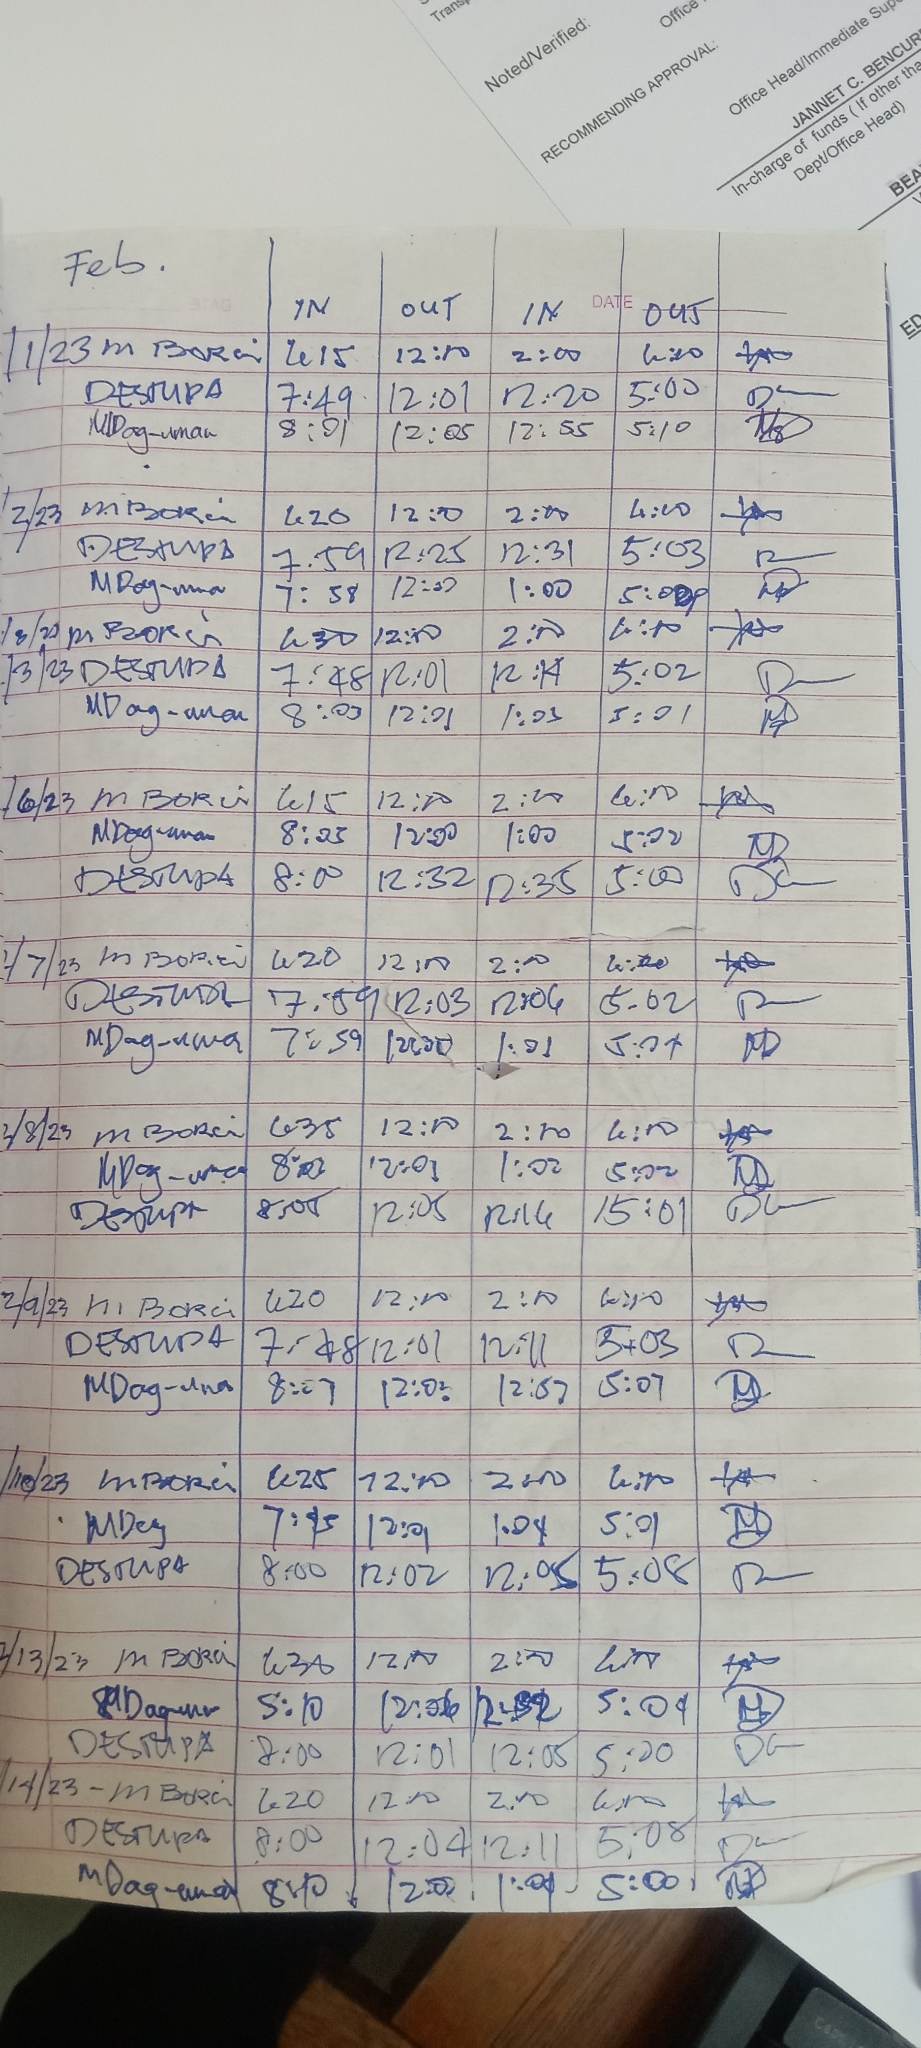 Trans
Noted/Verified:
Office
RECOMMENDING APPROVAL:
Office Head/Immediate Sup
JANNET C. BENCUR
In-charge of funds ( If other tha
Dept/Office Head)
BEA
ED
Feb.
DATE
IN OUT IN OUT
/1/23 M BORCI 6:15 12:00 2:00 6:00
DESTUPA 7:49 12:01 12:20 5:00
MDag-uman 8:01 12:05 12:55 5:10
/2/23 M BORCI 620 12:00 2:00 6:00
DESTUPA 7:59 12:25 12:31 5:03
MDag-uma 7:58 12:00 1:00
M BORCI 630 12:00 2:00 6:00
/3/23 DESTUPA 7:48 12:01 12:14 5:02
MDag-uman 8:03 12:01 1:03 5:01
/6/23 M BORCI 615 12:00 2:00 6:00
MDag-uman 8:05 12:00 1:00 5:02
DESTUPA 8:00 12:32 12:35 5:00
/7/23 M BORCI 620 12:00 2:00
DESTUPA 7:59 12:03 12:06 5:02
MDag-uma 7:59 1:01 5:04
2/8/23 M BORCI 635 12:00 2:00 6:00
MDag-uma 8:02 12:01 1:02 5:02
DESTUPA 8:05 12:05 12:16 15:01
2/9/23 M BORCI 620 12:00 2:00 6:00
DESTUPA 7:48 12:01 12:11 5:03
MDag-uma 8:07 12:57 5:07
/10/23 M BORCI 625 12:00 2:00 6:00
MDag 7:45 12:01 1:04 5:01
DESTUPA 8:00 12:02 12:05 5:08
2/13/23 M BORCI 630 12:00 2:00 6:00
MDag-uma 12:06 5:04
DESTUPA 8:00 12:01 12:05 5:00
/14/23 - M BORCI 620 12:00 2:00 6:00
DESTUPA 8:00 12:04 12:11 5:08
MDag-uman 8:10 5:00